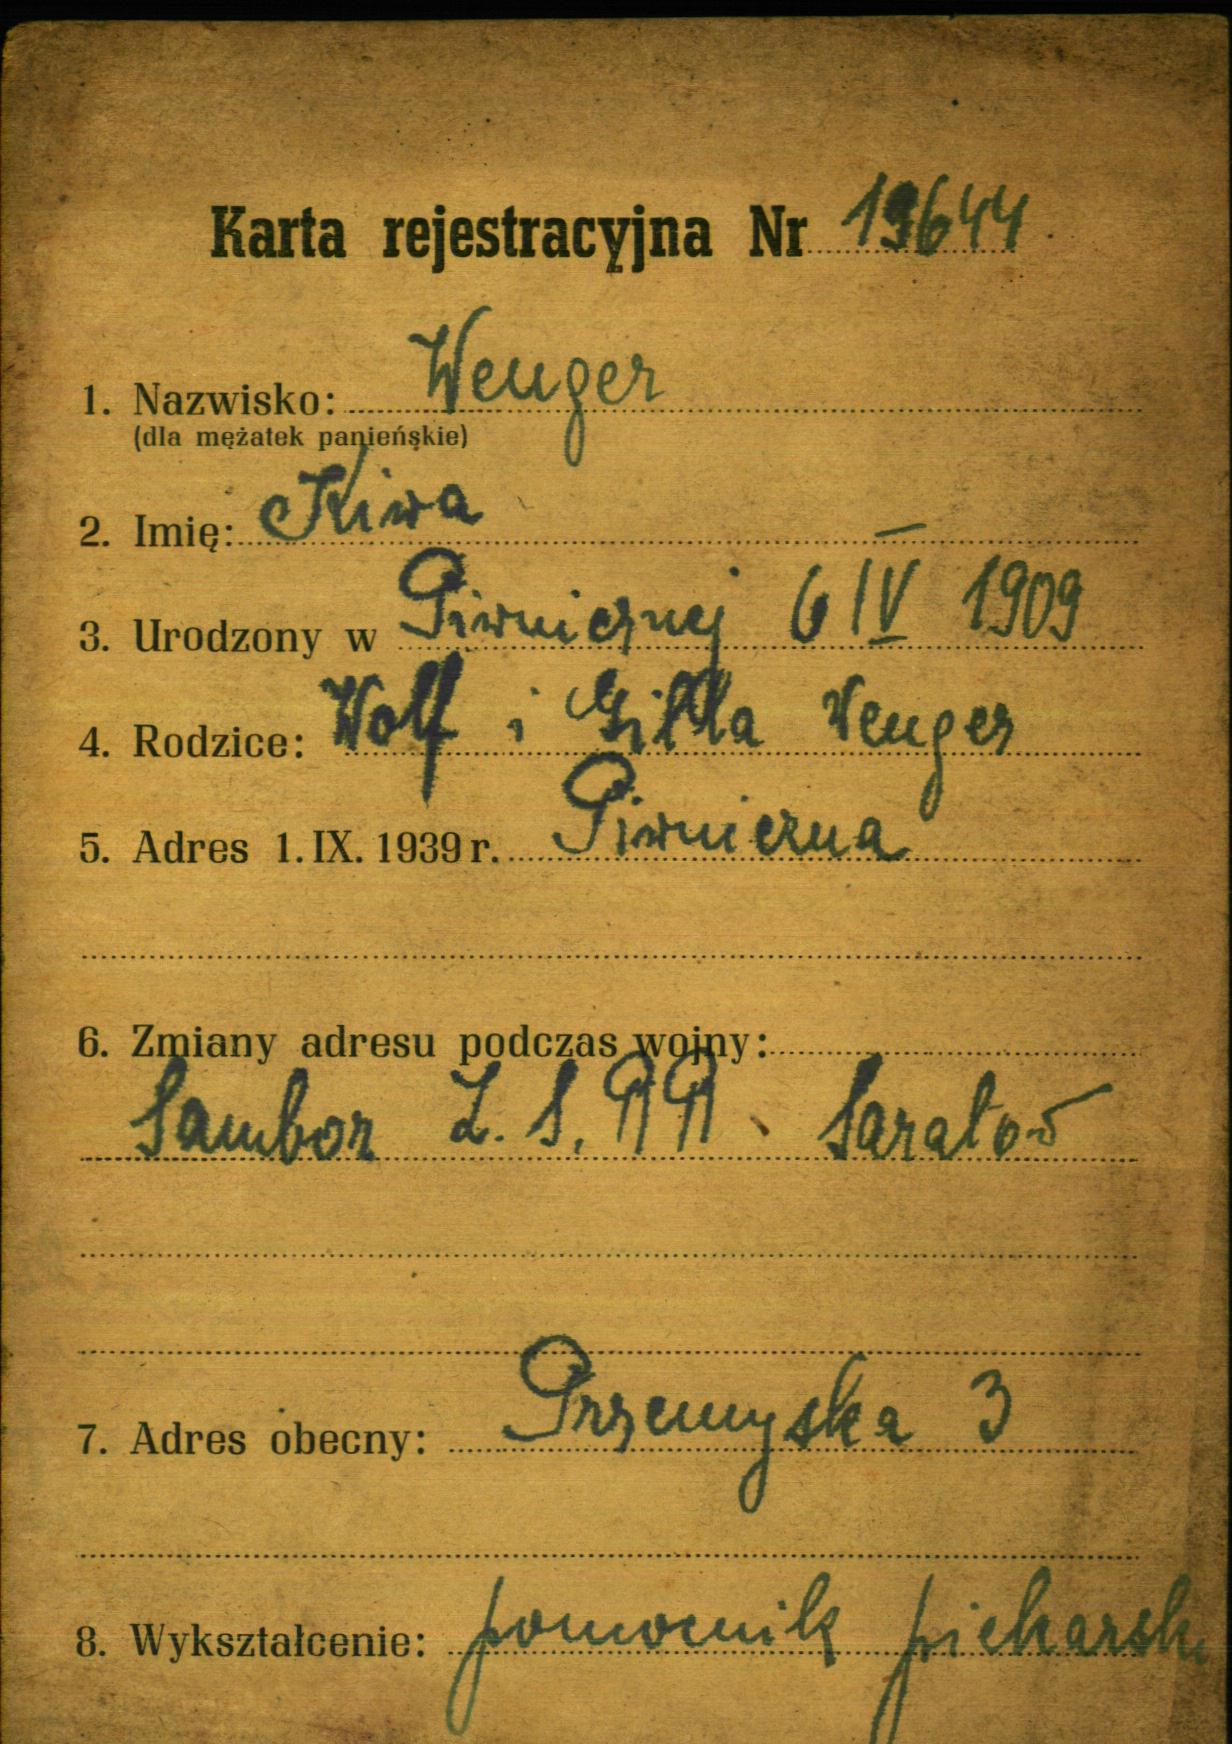 Karta rejestracyjna Nr 19644
1. Nazwisko: Wenger
(dla mężatek panieńskie)
2. Imię: Kiwa
3. Urodzony w Piwnicznej 6 IV 1909
4. Rodzice: Wolf i Gitla Wenger
5. Adres 1. IX. 1939 r. Piwniczna
6. Zmiany adresu podczas wojny:
Sambor Z.S.RR. Saratow
7. Adres obecny: Przemyska 3
8. Wykształcenie: pomocnik piekarski